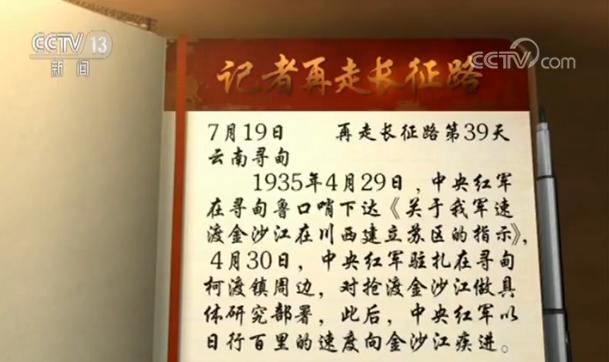 CCTV 13
新闻
CCTV.com
记者再走长征路
7月19日 再走长征路第39天
云南寻甸
1935年4月29日,中央红军
在寻甸鲁口哨下达《关于我军速
渡金沙江在川西建立苏区的指示》,
4月30日,中央红军驻扎在寻甸
柯渡镇周边,对抢渡金沙江做具
体研究部署,此后,中央红军以
日行百里的速度向金沙江疾进。